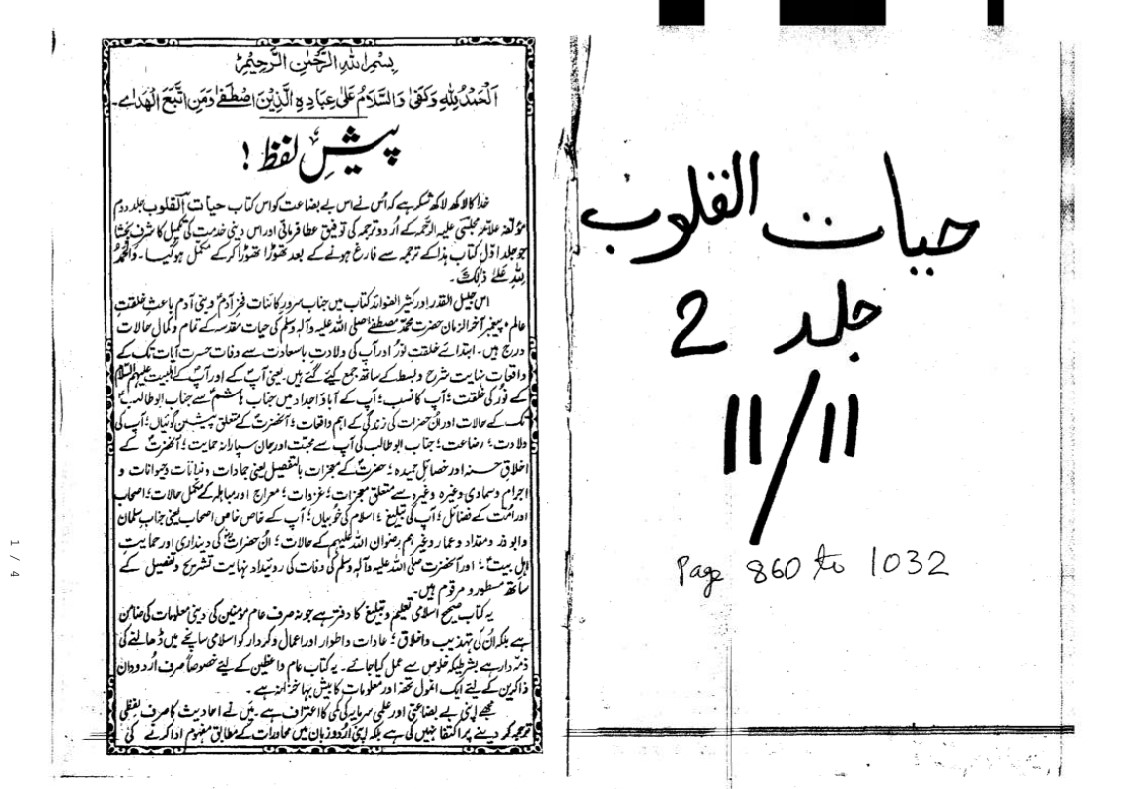 حیات القلوب
جلد 2
11/11
Page 860 to 1032
بِسْمِ اللهِ الرَّحْمٰنِ الرَّحِیْمِ
اَلْحَمْدُ لِلّٰهِ وَكَفٰى وَالسَّلَامُ عَلٰى عِبَادِهِ الَّذِیْنَ اصْطَفٰى وَمَنِ اتَّبَعَ الْهُدٰے۔
پیشِ لفظ !
خدا کا لاکھ لاکھ شکر ہے کہ اُس نے اس بے بضاعت کو اس کتاب حیات القلوب جلد دوم
مؤلفہ علامہ مجلسی علیہ الرحمہ کے اُردو ترجمہ کی توفیق عطا فرمائی اور اس دینی خدمت کی تکمیل کا شرف بخشا
جو جلد اوّل کتاب ہذا کے ترجمہ سے فارغ ہونے کے بعد تھوڑا تھوڑا کرکے مکمل ہوگیا۔ والحمد
للہِ علےٰ ذٰلک۔
اس جلیل القدر اور کثیر الفوائد کتاب میں جناب سرور کائنات فخر آدم و بنی آدم باعثِ خلقتِ
عالم، پیغمبر آخر الزمان حضرت محمد مصطفےٰ صلی اللہ علیہ وآلہ وسلم کی حیات مقدسہ کے تمام و کمال حالات
درج ہیں۔ ابتدائے خلقت نورؐ اور آپ کی ولادت باسعادت سے وفات حسرت آیات تک کے
واقعات نہایت شرح و بسط کے ساتھ جمع کیئے گئے ہیں۔ یعنی آپؐ کے اور آپؐ کے اہلبیت علیہم السلام
کے نورؐ کی خلقت؛ آپ کا نسب؛ آپ کے آباؤ اجداد میں جناب ہاشمؑ سے جناب ابو طالبؑ
تک کے حالات اور اُن حضرات کی زندگی کے اہم واقعات؛ آنحضرتؐ کے متعلق پیشین گوئیاں؛ آپ کی
ولادت؛ رضاعت؛ جناب ابو طالب کی آپ سے محبت اور جان سپارانہ حمایت؛ آنحضرتؐ کے
اخلاق حسنہ اور خصائل حمیدہ؛ حضرتؐ کے معجزات بالتفصیل یعنی جمادات و نباتات و حیوانات و
اجرام و سماوی وغیرہ وغیرہ سے متعلق معجزات؛ غزوات؛ معراج اور مباہلہ کے مکمل حالات؛ اصحاب
اور اُمت کے فضائل؛ آپ کی تبلیغ؛ اسلام کی خوبیاں؛ آپ کے خاص خاص اصحاب یعنی جناب سلمان
و ابوذر و مقداد و عمار وغیرہم رضوان اللہ علیہم کے حالات؛ اُن حضرات کی دینداری اور حمایتِ
اہل بیتؑ؛ اور آنحضرت صلی اللہ علیہ وآلہ وسلم کی وفات کی روئیداد نہایت تشریح و تفصیل کے
ساتھ مسطور و مرقوم ہیں۔
یہ کتاب صحیح اسلامی تعلیم و تبلیغ کا دفتر ہے جو نہ صرف عام مومنین کی دینی معلومات کی ضامن
ہے بلکہ اُن کی تہذیب و اخلاق؛ عادات و اطوار اور اعمال و کردار کو اسلامی سانچے میں ڈھالنے کی
ذمہ دار ہے بشرطیکہ خلوص سے عمل کیا جائے۔ یہ کتاب عام واعظین کے لیئے خصوصاً صرف اُردو دان
ذاکرین کے لیئے ایک انمول تحفہ اور معلومات کا بیش بہا خزانہ ہے۔
مجھے اپنی بے بضاعتی اور علمی سرمایہ کی کمی کا اعتراف ہے۔ میں نے احادیث کا صرف لفظی
ترجمہ کر دینے پر اکتفا نہیں کی ہے بلکہ اپنی اُردو زبان میں محاورات کے مطابق مفہوم ادا کرنے کی
1 / 4